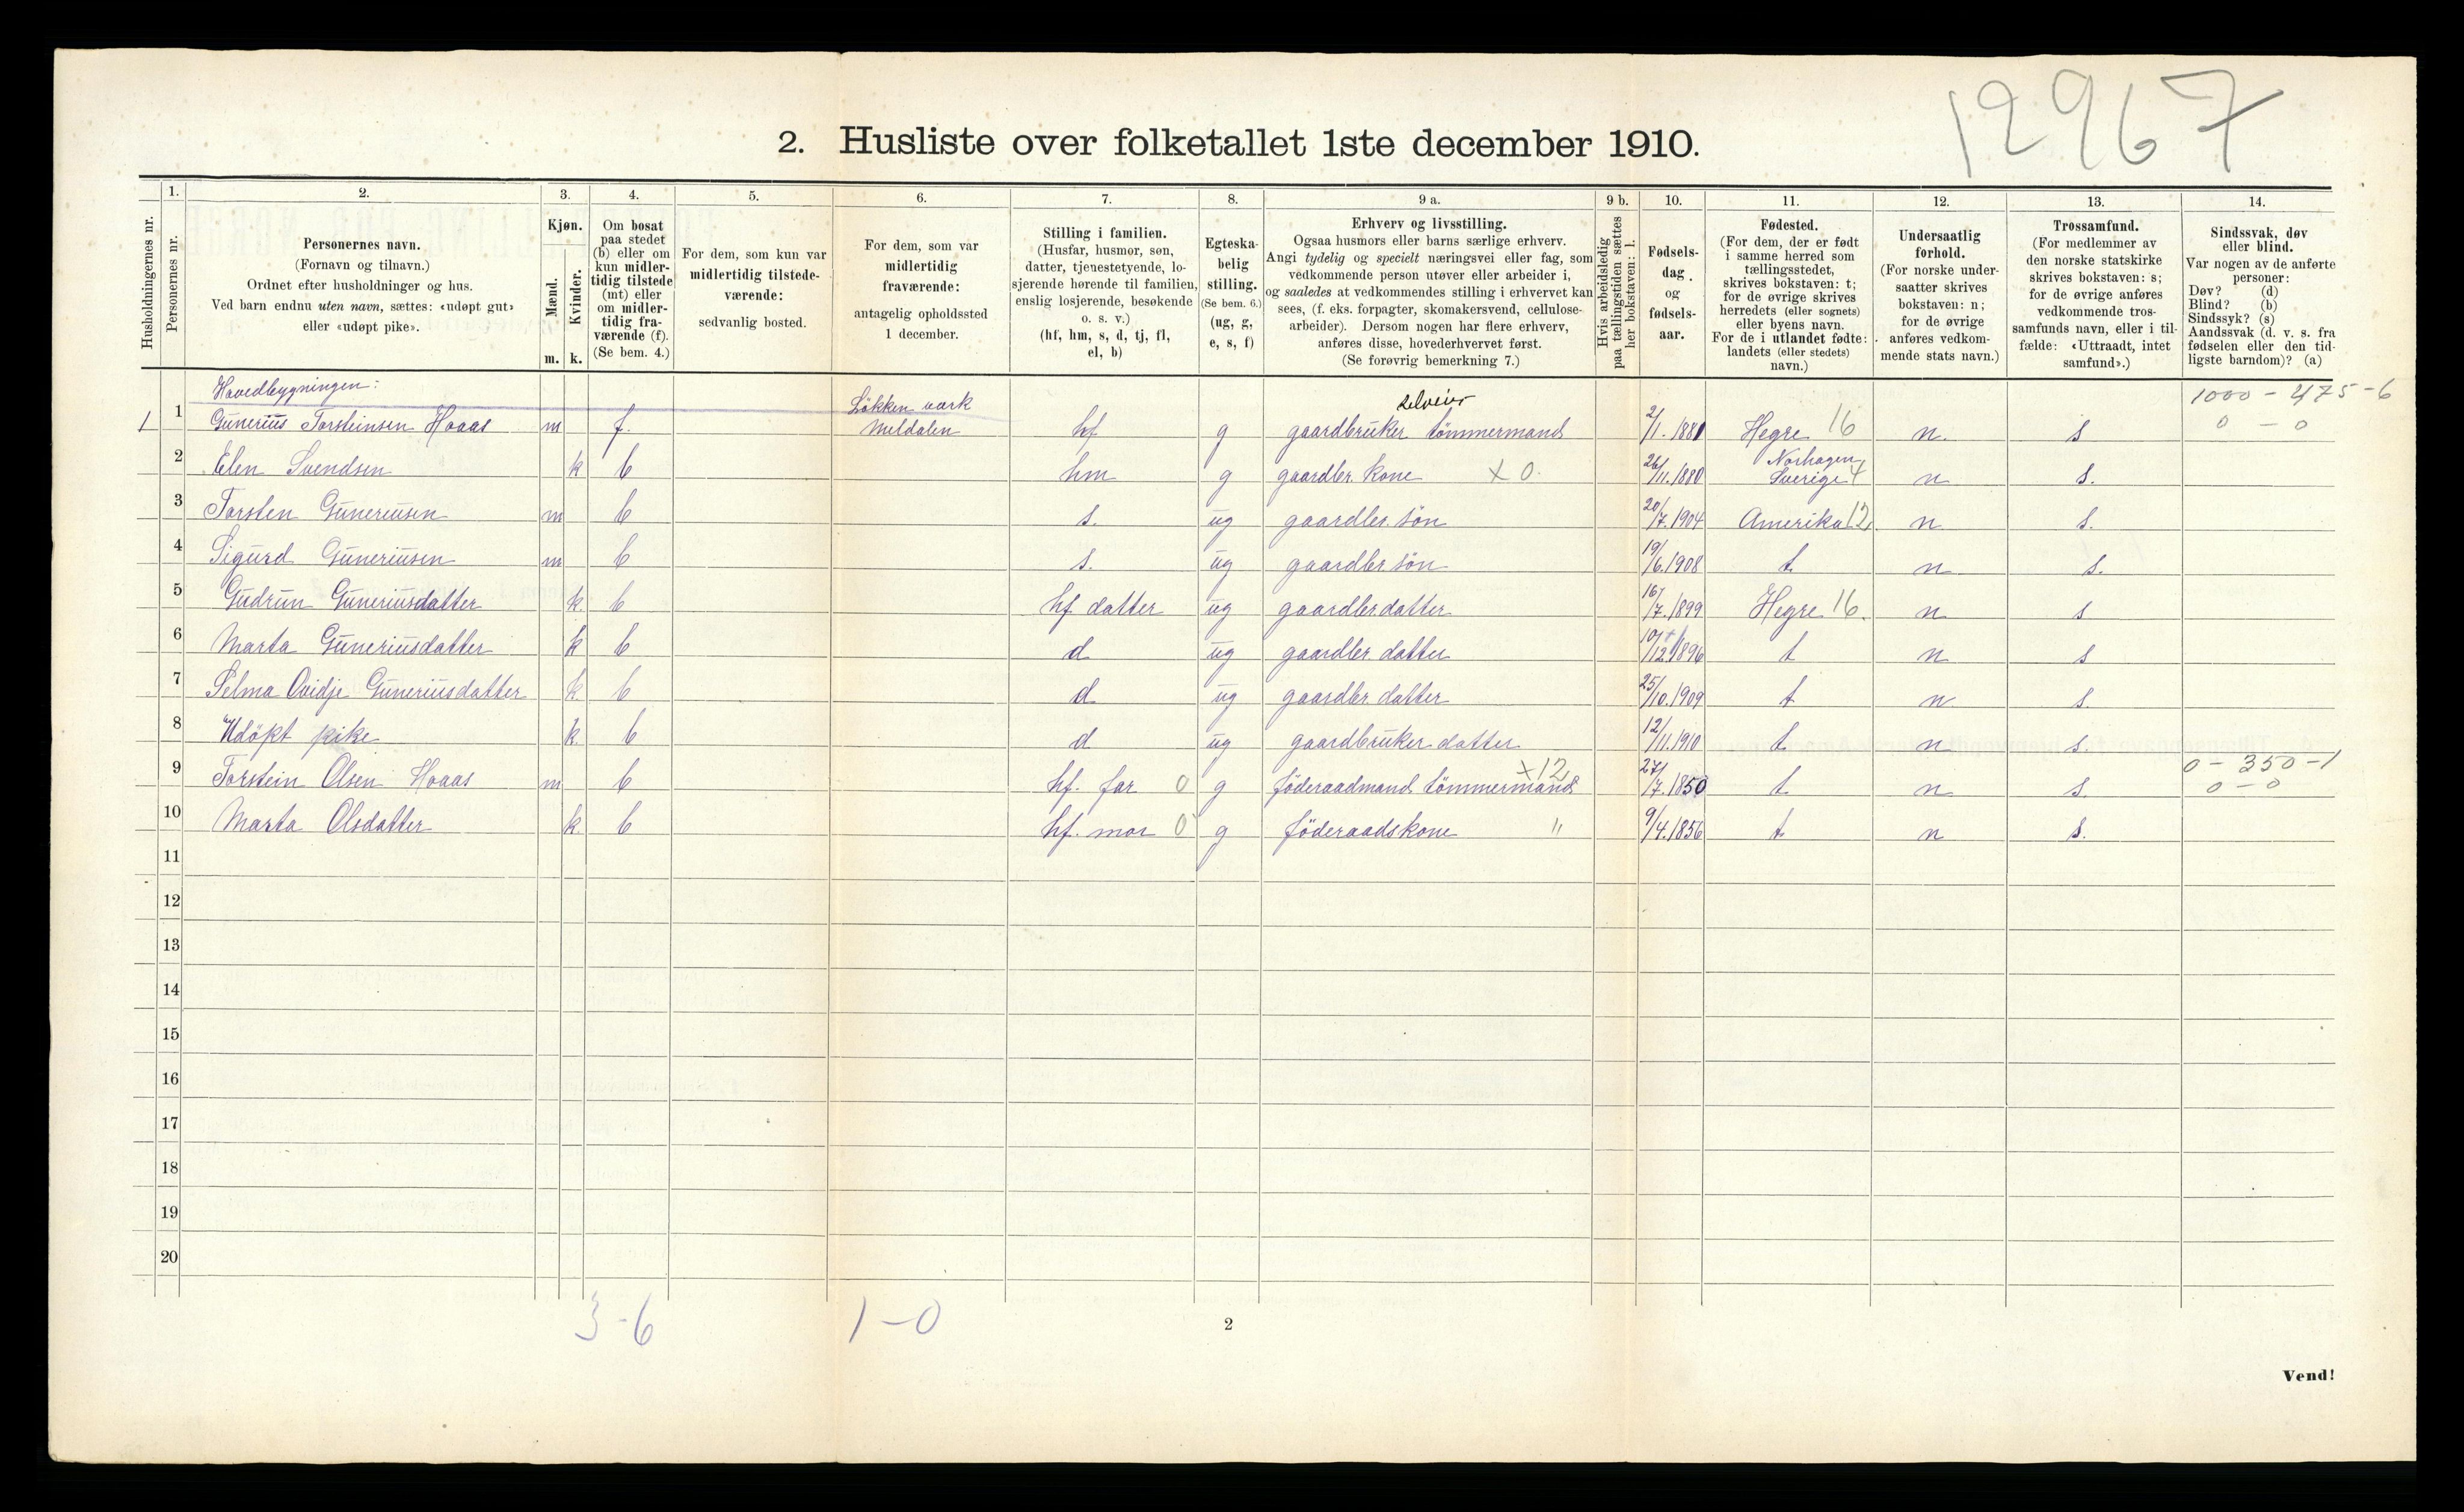 12967
2. Husliste over folketallet 1ste december 1910.
Husholdningernes nr.
1.
Personernes nr.
2.
Personernes navn.
(Fornavn og tilnavn.)
Ordnet efter husholdninger og hus.
Ved barn endnu uten navn, sættes: «udøpt gut»
eller «udøpt pike».
3.
Kjøn.
Mænd.
Kvinder.
m. k.
4.
Om bosat
paa stedet
(b) eller om
kun midler-
tidig tilstede
(mt) eller
om midler-
tidig fra-
værende (f).
(Se bem. 4.)
5.
For dem, som kun var
midlertidig tilstede-
værende:
sedvanlig bosted.
6.
For dem, som var
midlertidig
fraværende:
antagelig opholdssted
1 december.
7.
Stilling i familien.
(Husfar, husmor, søn,
datter, tjenestetyende, lo-
sjerende hørende til familien,
enslig losjerende, besøkende
o. s. v.)
(hf, hm, s, d, tj, fl,
el, b)
8.
Egteska-
belig
stilling.
(Se bem. 6.)
(ug, g,
e, s, f)
9 a.
Erhverv og livsstilling.
Ogsaa husmors eller barns særlige erhverv.
Angi tydelig og specielt næringsvei eller fag, som
vedkommende person utøver eller arbeider i,
og saaledes at vedkommendes stilling i erhvervet kan
sees, (f. eks. forpagter, skomakersvend, cellulose-
arbeider). Dersom nogen har flere erhverv,
anføres disse, hovederhvervet først.
(Se forøvrig bemerkning 7.)
9 b.
Hvis arbeidsledig
paa tællingstiden sættes
her bokstaven: l.
10.
Fødsels-
dag
og
fødsels-
aar.
11.
Fødested.
(For dem, der er født
i samme herred som
tællingsstedet,
skrives bokstaven: t;
for de øvrige skrives
herredets (eller sognets)
eller byens navn.
For de i utlandet fødte:
landets (eller stedets)
navn.)
12.
Undersaatlig
forhold.
(For norske under-
saatter skrives
bokstaven: n;
for de øvrige
anføres vedkom-
mende stats navn.)
13.
Trossamfund.
(For medlemmer av
den norske statskirke
skrives bokstaven: s;
for de øvrige anføres
vedkommende tros-
samfunds navn, eller i til-
fælde: «Uttraadt, intet
samfund».)
14.
Sindssvak, døv
eller blind.
Var nogen av de anførte
personer:
Døv? (d)
Blind? (b)
Sindssyk? (s)
Aandssvak (d. v. s. fra
fødselen eller den tid-
ligste barndom)? (a)
Hovedbygningen: Løkken værk selveier 1000 - 475 - 6
1 1 Gunerius Torsteinsen Hoaas m f. Meldalen hf g gaardbruker tømmermand 2/1. 1881 Hegre 16 n. s 0 - 0
Norhagen
2 Elen Svendsen k b hm g gaardbr. kone X 0. 26/11. 1880 Sverige 4 n s.
3 Torsten Guneriusen m b s. ug gaardbr. søn 20/7. 1904 Amerika 12. n s.
4 Sigurd Guneriusen m b s. ug gaardbr søn 19/6. 1908 t. n s.
5 Gudrun Guneriusdatter k b hf datter ug gaardbr datter 16/7. 1899 Hegre 16. n s
6 Marta Guneriusdatter k b d ug gaardbr. datter 10/12 1896 t n s
7 Selma Ovidje Guneriusdatter k b d ug gaardbr datter 25/10. 1909 t n s.
8 Udøpt pike k. b d ug gaardbruker datter 12/11. 1910 t. n s.
0 - 350 - 1
9 Torstein Olsen Hoaas m b hf. far 0 g føderaadmand tømmermand X 12 27/7. 1850 t. n s. 0 - 0
10 Marta Olsdatter k b hf. mor 0 g føderaadskone " 9/4. 1856 t. n s.
11
12
13
14
15
16
17
18
19
20
3 - 6
1 - 0
2
Vend!